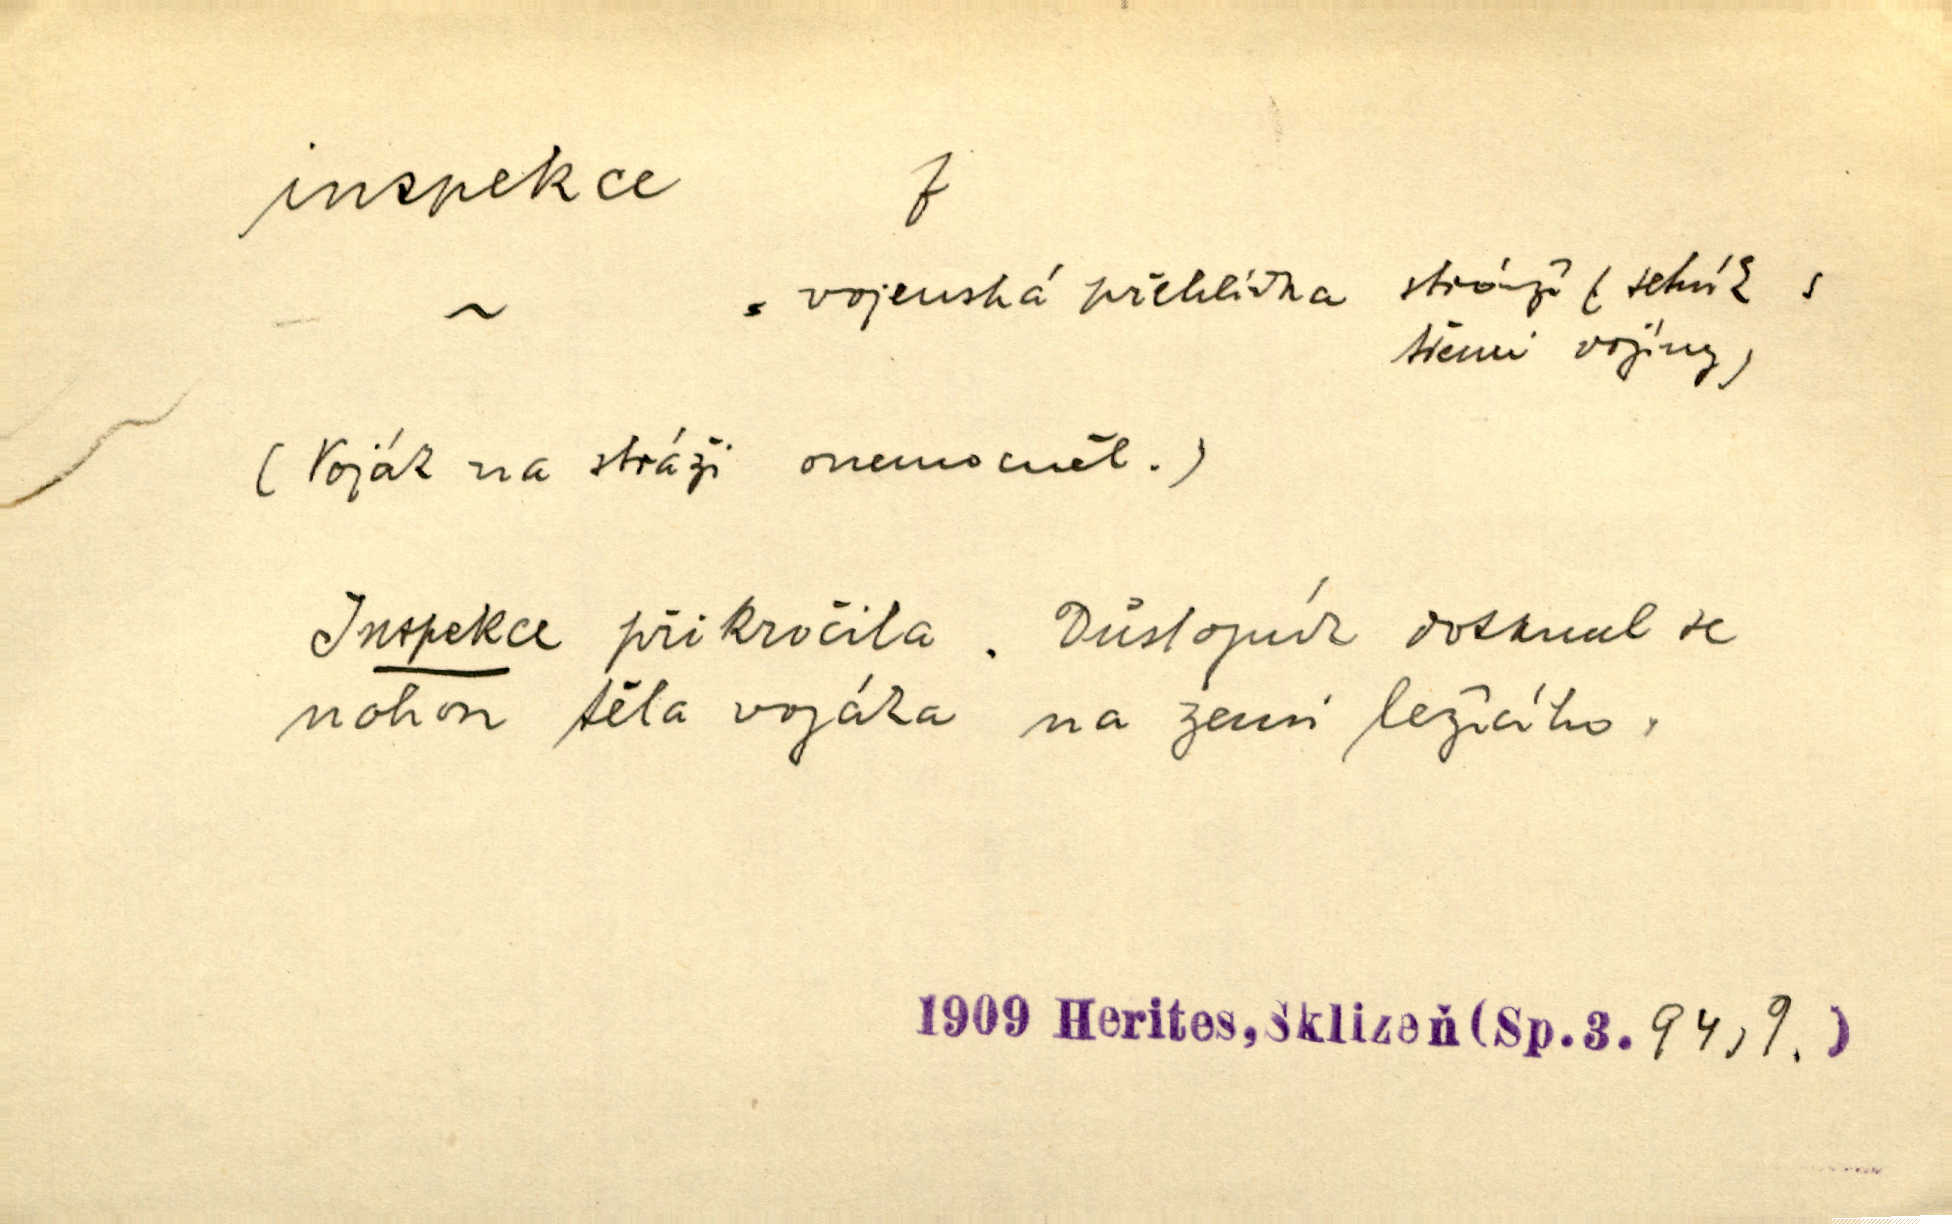 inspekce f
~ = vojenská přehlídka stráží (setník s
třemi vojíny)
(Voják na stráži onemocněl.)
Inspekce přikročila. Důstojník dotknul se
nohou těla vojáka na zemi ležícího.
1909 Herites, Sklizeň (Sp.3. 94, 9.)